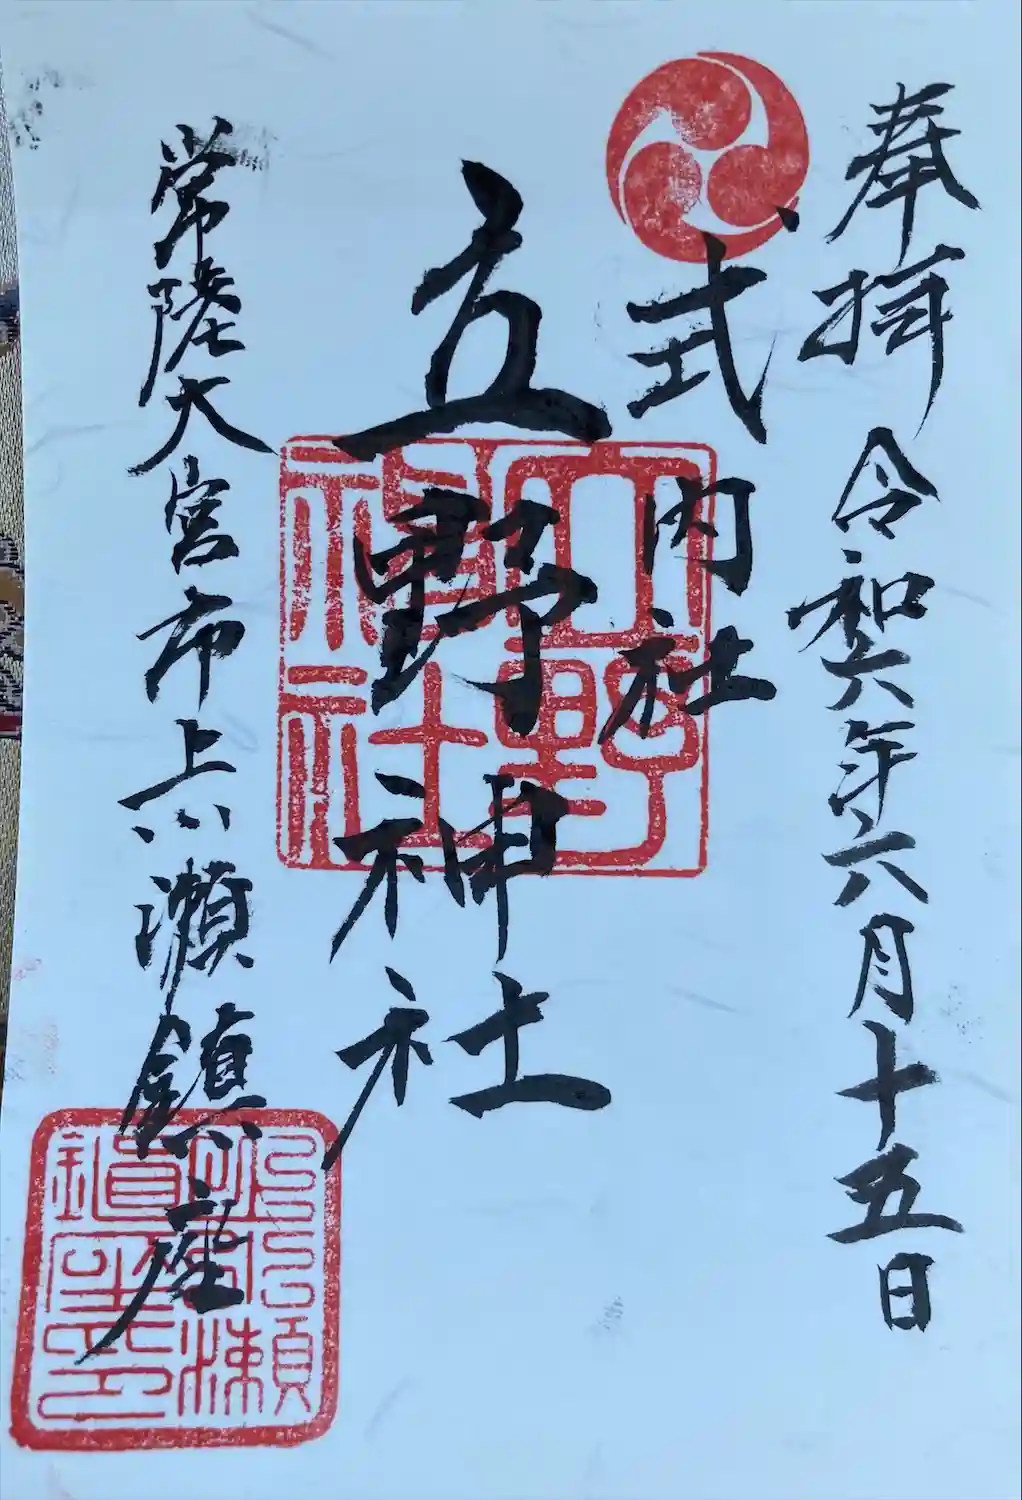 奉拝 令和六年六月十五日
式内社
立野神社
常陸大宮市上小瀬鎮座
立野神社